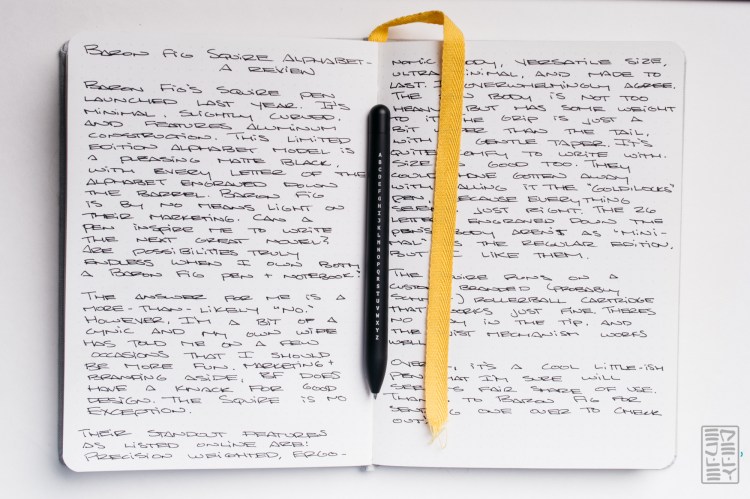 BARON FIG SQUIRE ALPHABET-
A REVIEW
BARON FIG'S SQUIRE PEN
LAUNCHED LAST YEAR. IT'S
MINIMAL, SLIGHTLY CURVED,
AND FEATURES ALUMINUM
CONSTRUCTION. THIS LIMITED
EDITION ALPHABET MODEL IS
A PLEASING MATTE BLACK,
WITH EVERY LETTER OF THE
ALPHABET ENGRAVED DOWN
THE BARREL. BARON FIG
IS BY NO MEANS LIGHT ON
THEIR MARKETING. CAN A
PEN INSPIRE ME TO WRITE
THE NEXT GREAT NOVEL?
ARE POSSIBILITIES TRULY
ENDLESS WHEN I OWN BOTH
A BARON FIG PEN + NOTEBOOK?
THE ANSWER FOR ME IS A
MORE-THAN-LIKELY "NO."
HOWEVER, I'M A BIT OF A
CYNIC AND MY OWN WIFE
HAS TOLD ME ON A FEW
OCCASIONS THAT I SHOULD
BE MORE FUN. MARKETING +
BRANDING ASIDE, BF DOES
HAVE A KNACK FOR GOOD
DESIGN. THE SQUIRE IS NO
EXCEPTION.
THEIR STANDOUT FEATURES
AS LISTED ONLINE ARE:
PRECISION WEIGHTED, ERGO-
ABCDEFGHIJKLMNOPQRSTUVWXYZ
NOMIC BODY, VERSATILE SIZE,
ULTRA MINIMAL, AND MADE TO
LAST. I OVERWHELMINGLY AGREE.
THE BODY IS NOT TOO
HEAVY, BUT HAS SOME WEIGHT
TO IT. THE GRIP IS JUST A
BIT WIDER THAN THE TAIL,
WITH A GENTLE TAPER. IT'S
QUITE COMFY TO WRITE WITH.
SIZE IS GOOD TOO. THEY
COULD HAVE GOTTEN AWAY
WITH CALLING IT THE "GOLDILOCKS"
PEN, BECAUSE EVERYTHING
SEEMS JUST RIGHT. THE 26
LETTERS ENGRAVED DOWN THE
PEN'S BODY AREN'T AS "MINI-
MAL" AS THE REGULAR EDITION,
BUT I LIKE THEM.
THE SQUIRE RUNS ON A
CUSTOM-BRANDED (PROBABLY
SCHMIDT) ROLLERBALL CARTRIDGE
THAT WORKS JUST FINE. THERE'S
NO PLAY IN THE TIP, AND
THE TWIST MECHANISM WORKS
WELL.
OVERALL, IT'S A COOL LITTLE-ISH
PEN THAT I'M SURE WILL
SEE ITS FAIR SHARE OF USE.
THANKS TO BARON FIG FOR
SENDING ONE OVER TO CHECK
OUT!